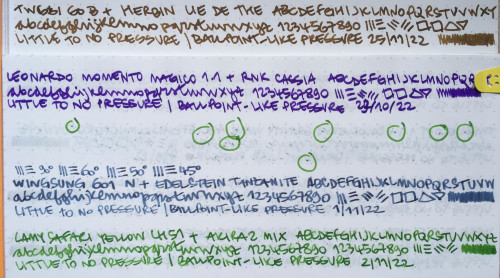 TWSBI GO B + HERBIN LIE DE THE ABCDEFGHIJKLMNOPQRSTUVWXY
abcdefghijklmnopqrstuvwxyz 1234567890
LITTLE TO NO PRESSURE / BALLPOINT-LIKE PRESSURE 25/11/22
LEONARDO MOMENTO MAGICO 1.1 + RNK CASSIA ABCDEFGHIJKLMNOPQR
abcdefghijklmnopqrstuvwxyz 1234567890
LITTLE TO NO PRESSURE / BALLPOINT-LIKE PRESSURE 29/10/22
90° 60° 50° 45°
WINGSUNG 601 N + EDELSTEIN TANZANITE ABCDEFGHIJKLMNOPQRSTUVW
abcdefghijklmnopqrstuvwxyz 1234567890
LITTLE TO NO PRESSURE / BALLPOINT-LIKE PRESSURE 1/11/22
LAMY SAFARI YELLOW (M5) + AKIRA 2 MIX ABCDEFGHIJKLMNOPQRSTUVWXYZ
abcdefghijklmnopqrstuvwxyz 1234567890 1234567890
LITTLE TO NO PRESSURE / BALLPOINT-LIKE PRESSURE 2/11/22